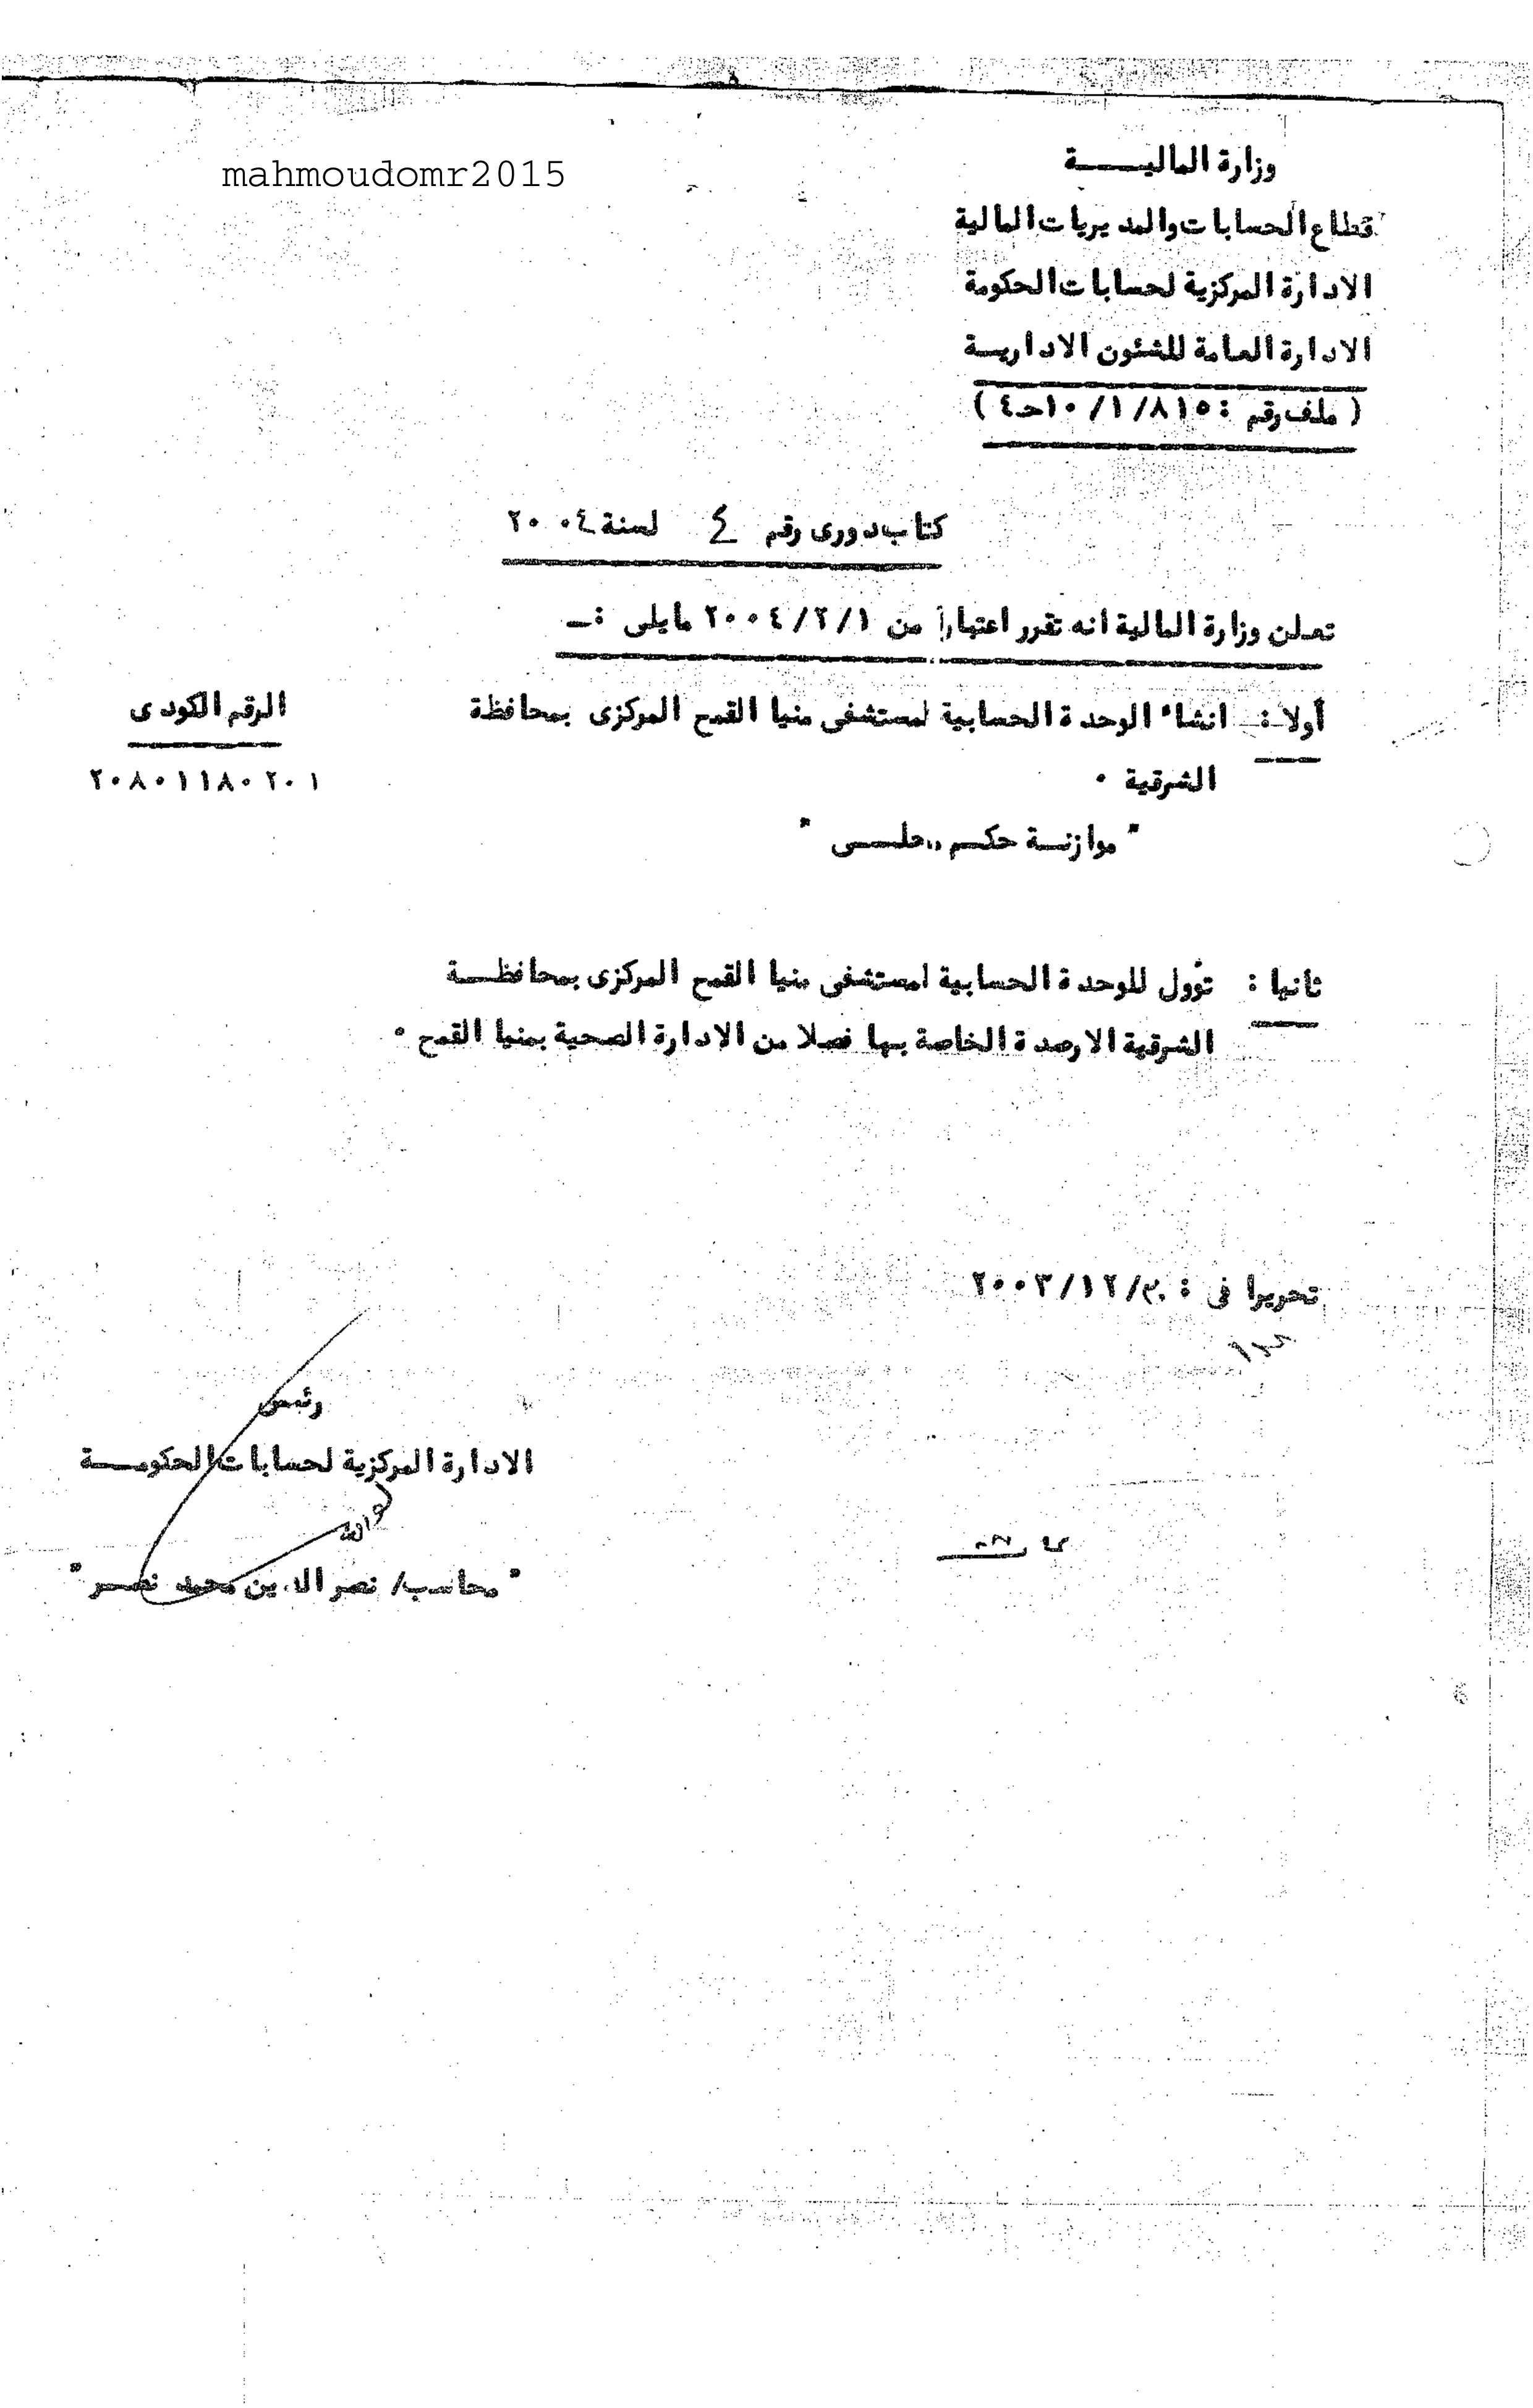 mahmoudomr2015
وزارة الماليـــة
قطاع الحسابات والمديريات المالية
الادارة المركزية لحسابات الحكومة
الادارة العامة للشئون الاداريـة
( ملف رقم : ٨١٥ /١ /١٠حـ٤ )
كتاب دورى رقم ٤ لسنة ٢٠٠٤
تعلن وزارة المالية انه تقرر اعتبارا من ٢٠٠٤/٢/١ مايلى :ــ
أولا : انشاء الوحدة الحسابية لمستشفى منيا القمح المركزى بمحافظة
الرقم الكودى
الشرقية ٠
٢٠٨٠١١٨٠٢٠١
" موازنـة حكـم محلـى "
ثانيا : تؤول للوحدة الحسابية لمستشفى منيا القمح المركزى بمحافظــة
الشرقية الارصدة الخاصة بها فصلا من الادارة الصحية بمنيا القمح ٠
تحريرا فى : ٢٠٠٣/١٢/٣٠
رئيس
الادارة المركزية لحسابات الحكومــة
" محاسب/ نصر الدين محمد نصـر "